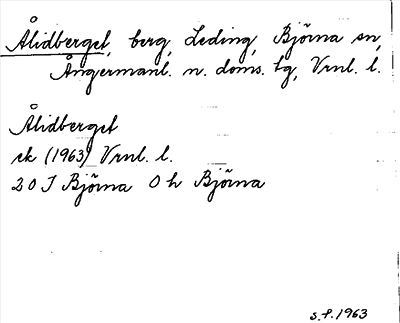 Ålidberget, berg, Leding, Björna sn,
Ångermanl. n. doms. tg, Vrnl. l.
Ålidberget
ek (1963) Vrnl. l.
20 J Björna 0 h Björna
s. f. 1963